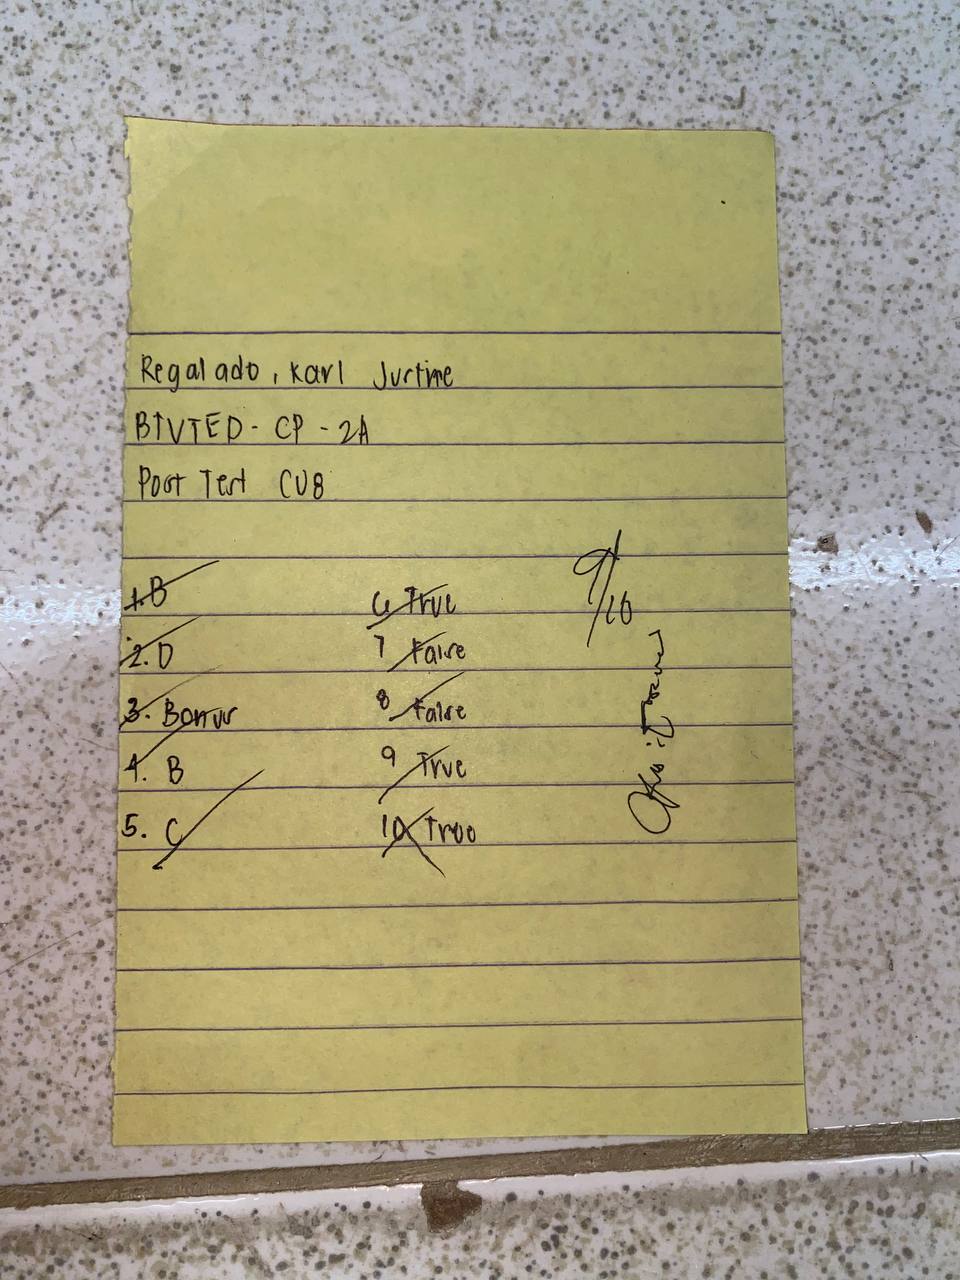 Regalado, Karl Justine
BTVTED - CP - 2A
Post Test CU8
1. B
2. D
3. Bonus
4. B
5. C
6 True
7 False
8 False
9 True
10 Troo
9/10